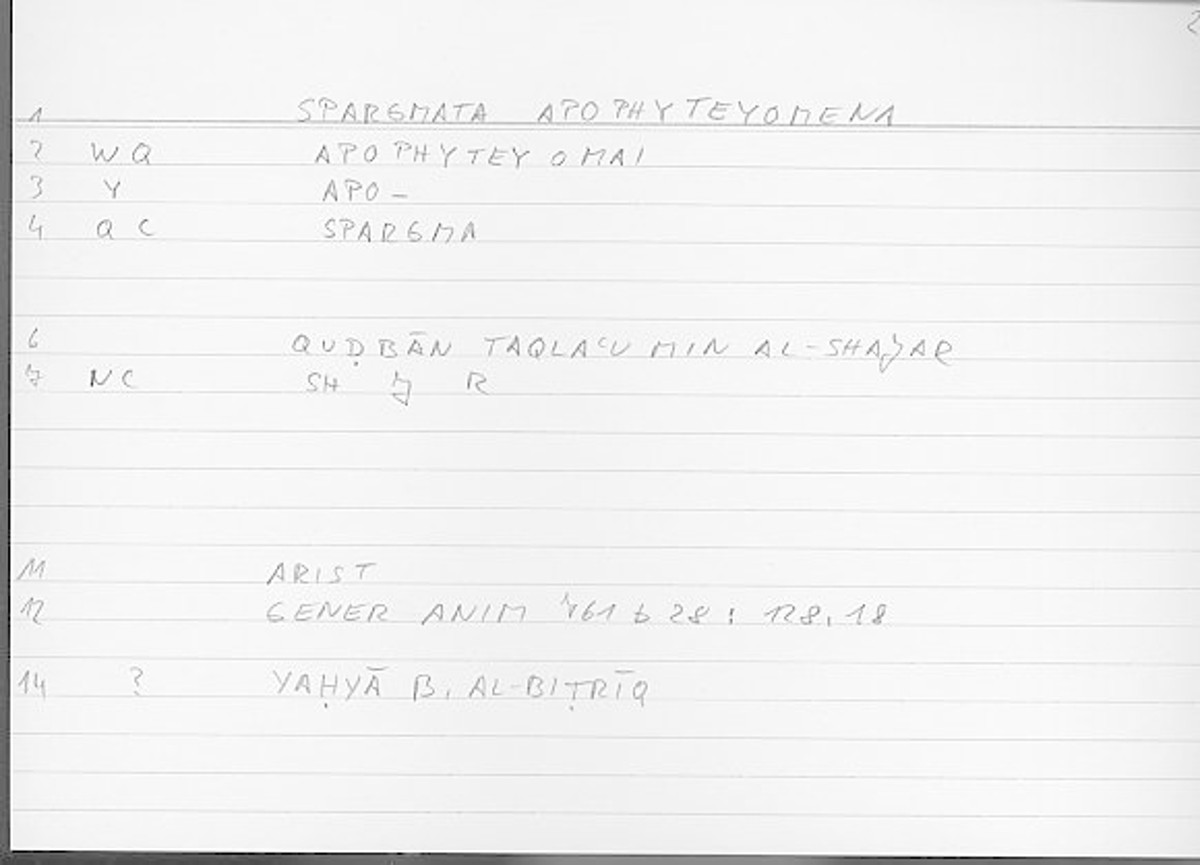 2
1 SPARGMATA APOPHYTEYOMENA
2 WQ APOPHYTEYOMAI
3 Y APO-
4 QC SPARGMA
6 QUḌBĀN TAQLAʿU MIN AL-SHAJAR
7 NC SH J R
11 ARIST
12 GENER ANIM 761 b 28 : 128,18
14 ? YAḤYĀ B. AL-BIṬRĪQ